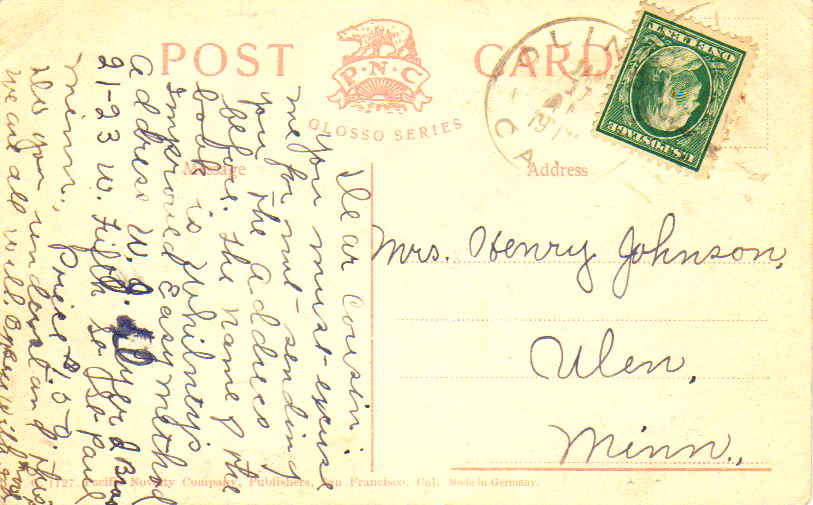 POST CARD
P. N. C.
GLOSSO SERIES
Message
Address
ONE CENT
U.S. POSTAGE
CA
Dear Cousin:
you must excuse
me for not sending
you the address
before. the name of the
book is Whitney's
Improved Easy method
address W. J. Dyer & Bros
21-23 W. Fifth St St. Paul
minn., Price 50¢.
Do you understand this
we are all well.
Mrs. Henry Johnson,
Ulen,
Minn.,
Pacific Novelty Company, Publishers, San Francisco, Cal. Made in Germany.